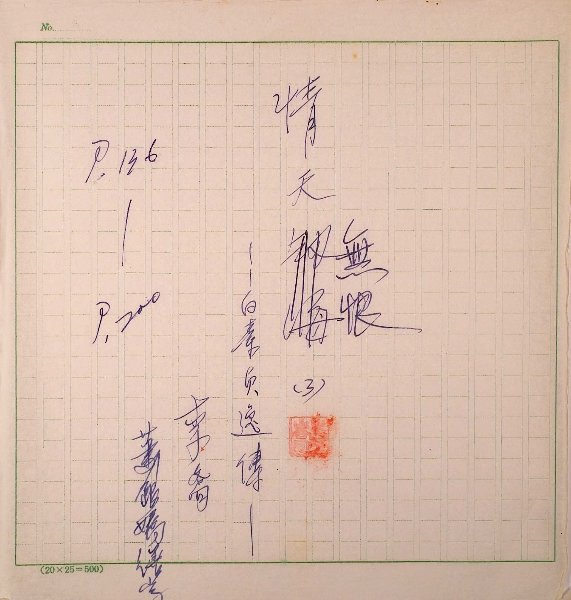 No.
情天無恨
(3)
——白素貞逸傳——
李喬
蕭銀嬌
P.136
|
P.200
(20×25=500)